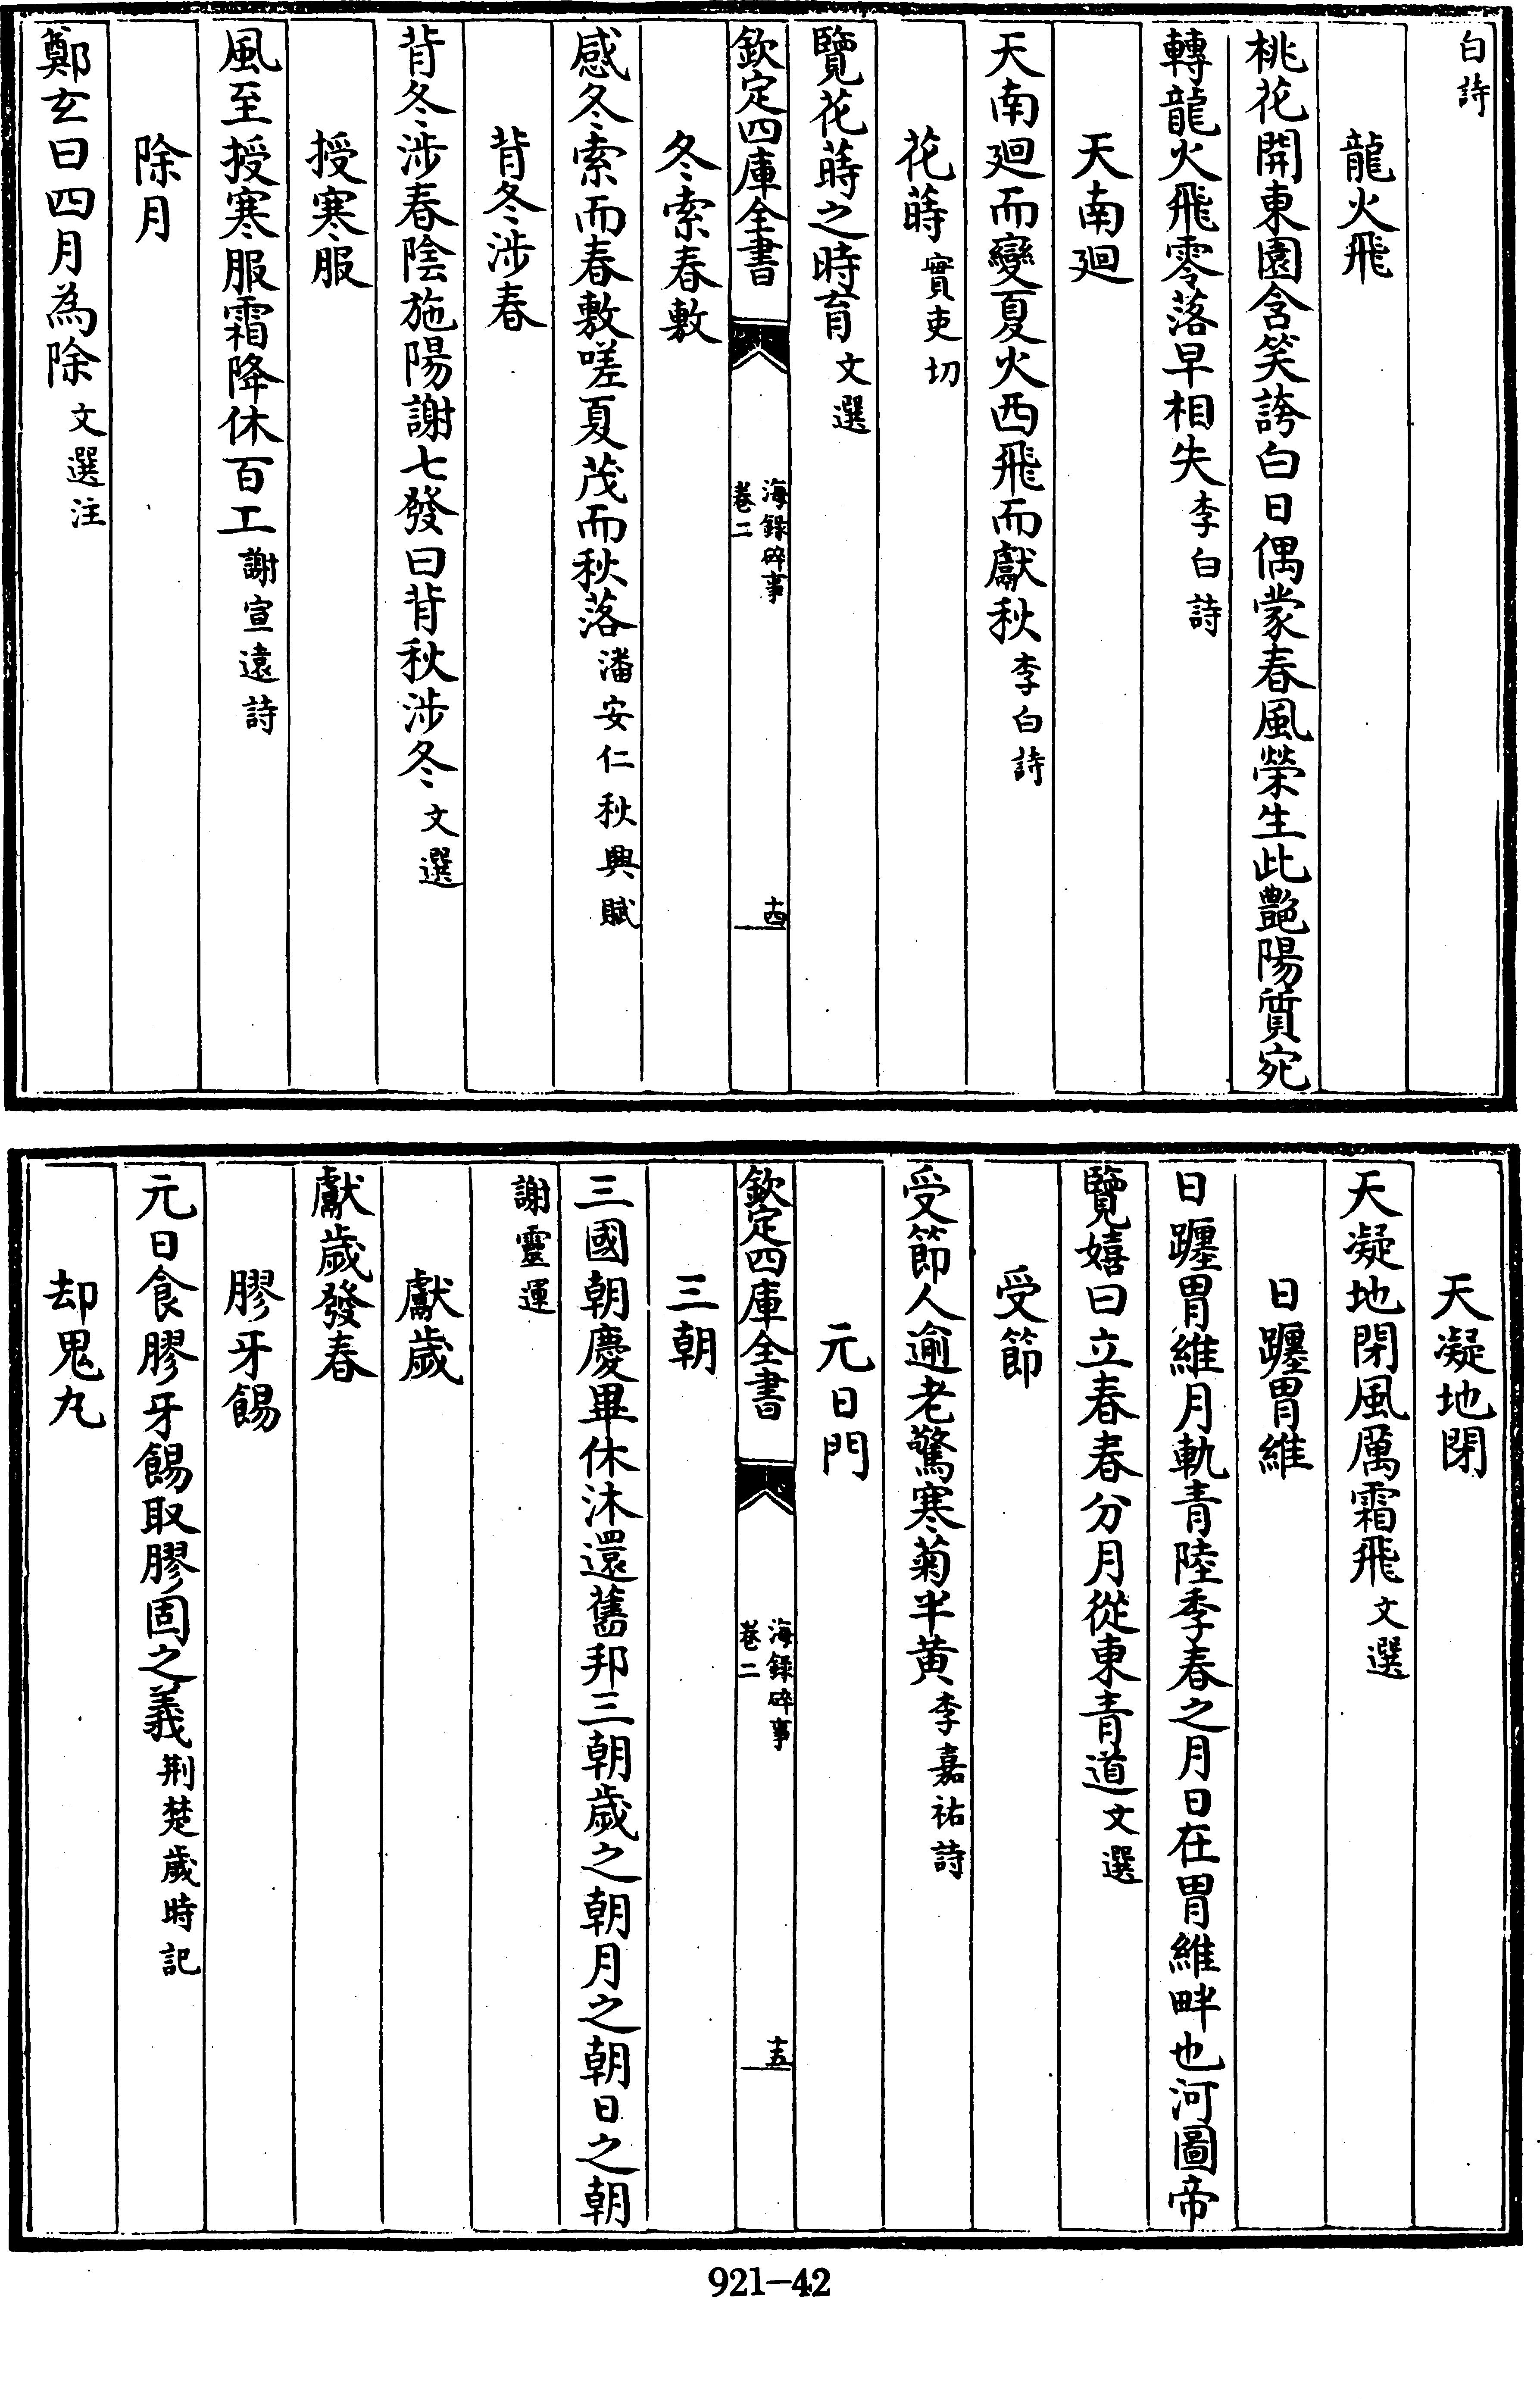 白詩
龍火飛
桃花開東園含笑誇白日偶蒙春風榮生此艷陽質宛
轉龍火飛零落早相失李白詩
天南廻
天南廻而變夏火西飛而獻秋李白詩
花蒔實吏切
覽花蒔之時育文選
欽定四庫全書
海錄碎事
卷二
十四
冬索春敷
感冬索而春敷嗟夏茂而秋落潘安仁秋興賦
背冬涉春
背冬涉春陰施陽謝七發曰背秋涉冬文選
授寒服
風至授寒服霜降休百工謝宣遠詩
除月
鄭玄曰四月為除文選注
天凝地閉
天凝地閉風厲霜飛文選
日躔胃維
日躔胃維月軌青陸季春之月日在胃維畔也河圖帝
覽嬉曰立春春分月從東青道文選
受節
受節人逾老驚寒菊半黃李嘉祐詩
元日門
欽定四庫全書
海錄碎事
卷二
十五
三朝
三國朝慶畢休沐還舊邦三朝歲之朝月之朝日之朝
謝靈運
獻歲
獻歲發春
膠牙餳
元日食膠牙餳取膠固之義荆楚歲時記
却鬼丸
921-42